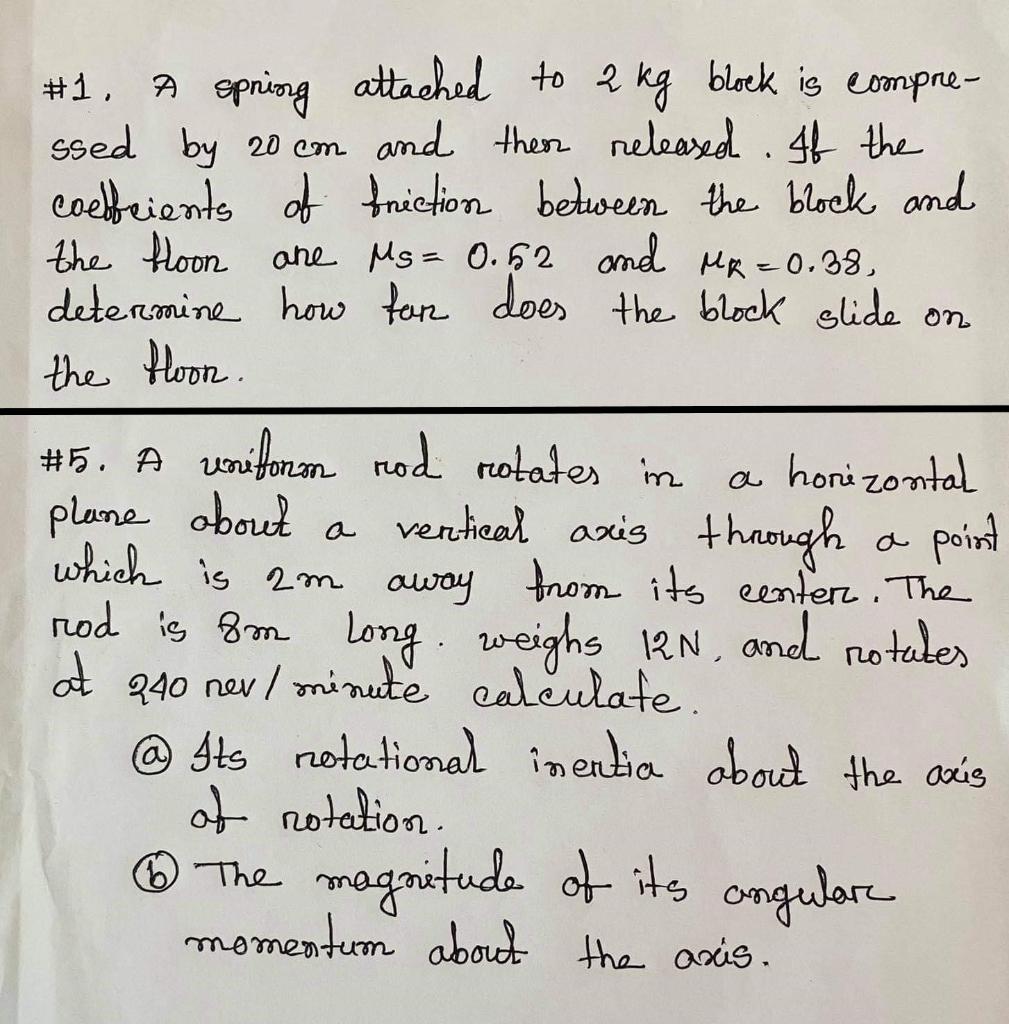 #1. A spring attached to 2 kg block is compre-
ssed by 20 cm and then released. If the
coefficients of friction between the block and
the floor are μs = 0.52 and μk = 0.38,
determine how far does the block slide on
the floor.
#5. A uniform rod rotates in a horizontal
plane about a vertical axis through a point
which is 2m away from its center. The
rod is 8m long. weighs 12N, and rotates
at 240 rev/minute calculate.
(a) Its rotational inertia about the axis
of rotation.
(b) The magnitude of its angular
momentum about the axis.